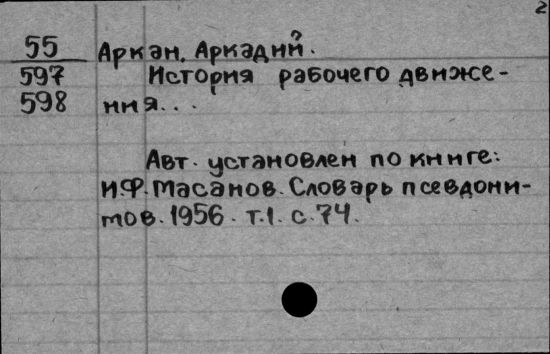 2
55 Аркан, Аркадий.
597 История рабочего движе-
598 ния...
Авт. установлен по книге:
И.Ф. Масанов. Словарь псевдони-
мов. 1956. т.1. с. 74.